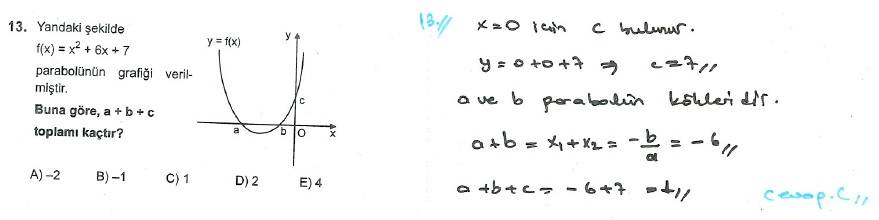 13. Yandaki şekilde
f(x) = x² + 6x + 7
parabolünün grafiği veril-
miştir.
Buna göre, a + b + c
toplamı kaçtır?
A) –2 B) –1 C) 1 D) 2 E) 4
y = f(x)
y
c
a b O x
13.//
x=0 için c bulunur.
y = 0+0+7 ⇒ c=7//
a ve b parabolün kökleridir.
a+b = x₁+x₂ = -b/a = -6//
a+b+c = -6+7 = 1//
cevap.C//